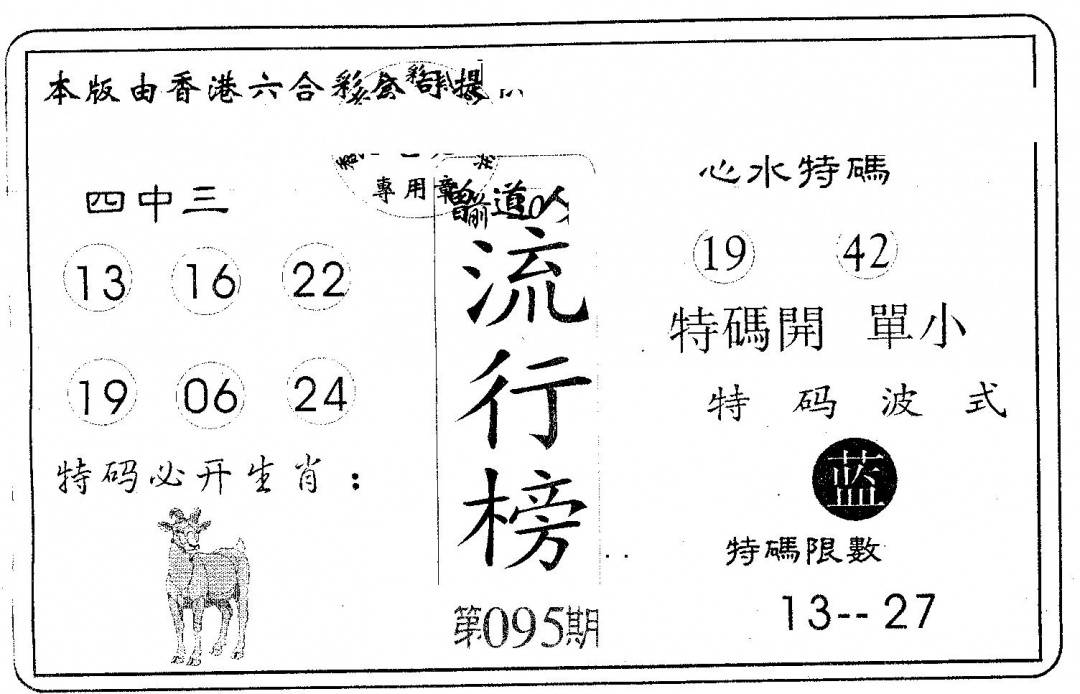 本版由香港六合彩公司提
專用章
曾道人
四中三
13 16 22
19 06 24
特码必开生肖：
流行榜
第095期
心水特碼
19 42
特碼開 單小
特码波式
蓝
特碼限數
13-- 27